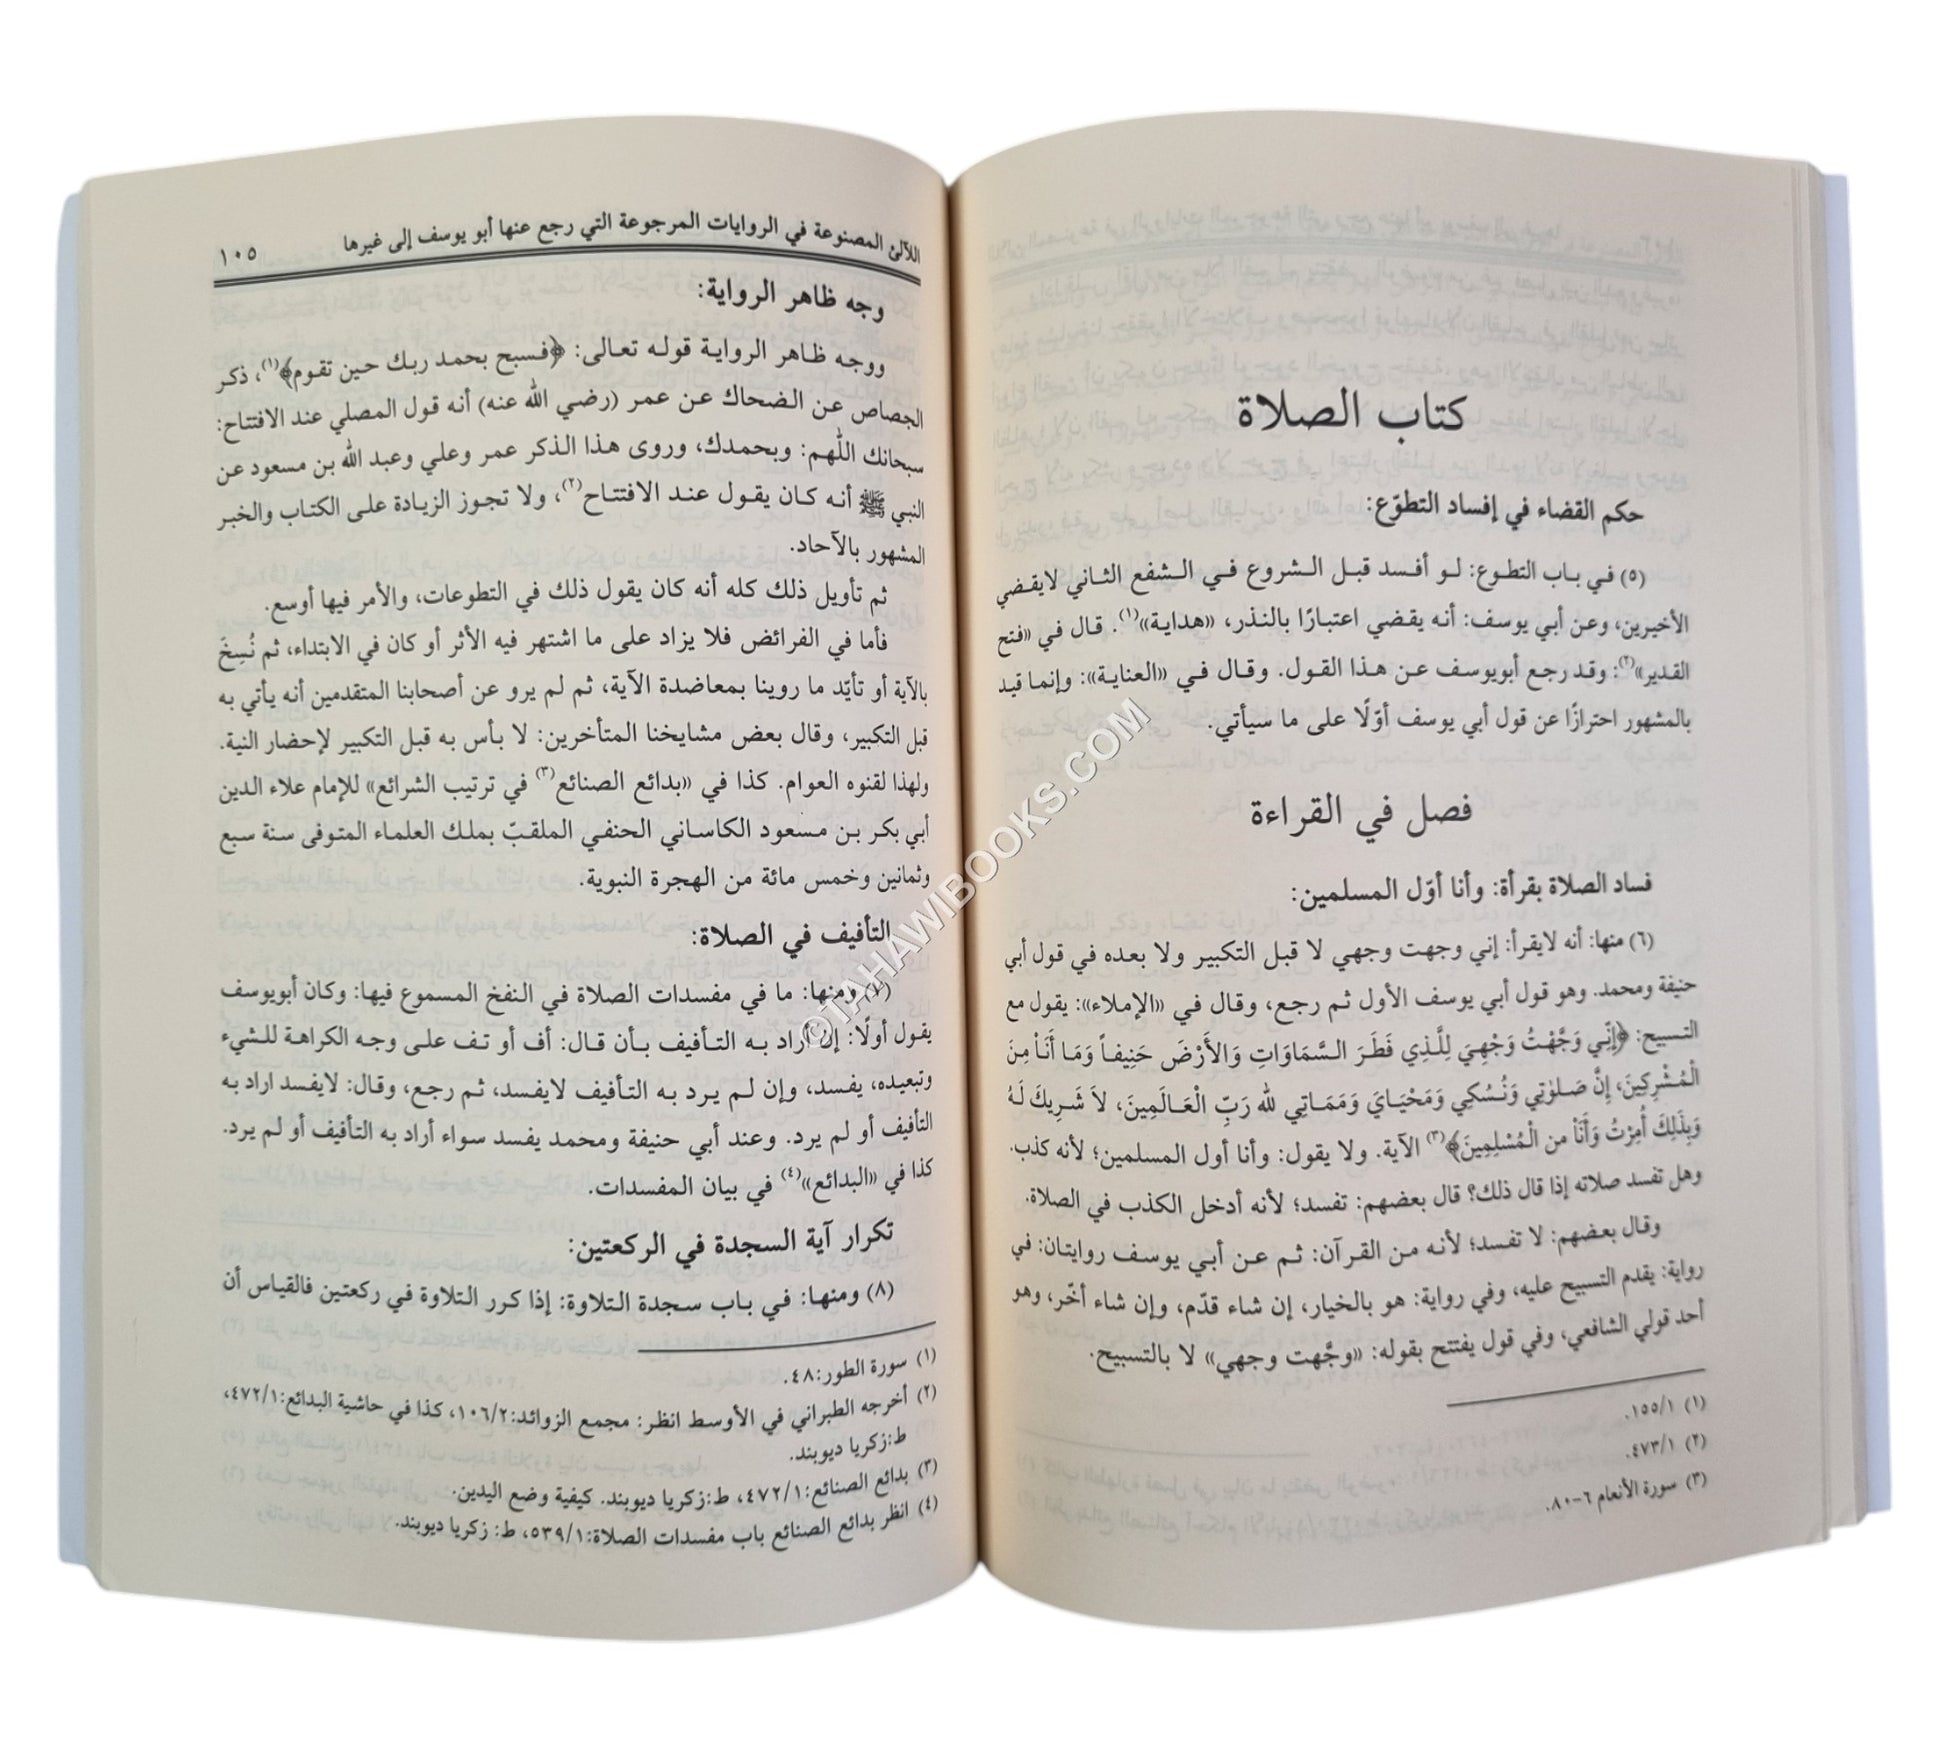 كتاب الصلاة
حكم القضاء في إفساد التطوّع:
(٥) في باب التطوع: لو أفسد قبل الشروع في الشفع الثاني لايقضي
الأخيرين، وعن أبي يوسف: أنه يقضي اعتبارًا بالنذر، «هداية»(١). قال في «فتح
القدير»(٢): وقد رجع أبويوسف عن هذا القول. وقال في «العناية»: وإنما قيد
بالمشهور احترازًا عن قول أبي يوسف أوّلًا على ما سيأتي.
فصل في القراءة
فساد الصلاة بقرأة: وأنا أوّل المسلمين:
(٦) منها: أنه لايقرأ: إني وجهت وجهي لا قبل التكبير ولا بعده في قول أبي
حنيفة ومحمد. وهو قول أبي يوسف الأول ثم رجع، وقال في «الإملاء»: يقول مع
التسبيح: ﴿إِنِّي وَجَّهْتُ وَجْهِيَ لِلَّذِي فَطَرَ السَّمَاوَاتِ وَالأَرْضَ حَنِيفاً وَمَا أَنَاْ مِنَ
الْمُشْرِكِينَ، إِنَّ صَلوٰتِي وَنُسُكِي وَمَحْيَايَ وَمَمَاتِي لله رَبِّ الْعَالَمِينَ، لاَ شَرِيكَ لَهُ
وَبِذَلِكَ أُمِرْتُ وَأَنَاْ من الْمُسْلِمِينَ﴾(٣) الآية. ولا يقول: وأنا أول المسلمين؛ لأنه كذب.
وهل تفسد صلاته إذا قال ذلك؟ قال بعضهم: تفسد؛ لأنه أدخل الكذب في الصلاة.
وقال بعضهم: لا تفسد؛ لأنه من القرآن: ثم عن أبي يوسف روايتان: في
رواية: يقدم التسبيح عليه، وفي رواية: هو بالخيار، إن شاء قدّم، وإن شاء أخّر، وهو
أحد قولي الشافعي، وفي قول يفتتح بقوله: «وجَّهت وجهي» لا بالتسبيح.
(١) ١/١٥٥.
(٢) ١/٤٧٣.
(٣) سورة الأنعام ٦-٨٠.
اللآلئ المصنوعة في الروايات المرجوعة التي رجع عنها أبو يوسف إلى غيرها ١٠٥
وجه ظاهر الرواية:
ووجه ظاهر الرواية قوله تعالى: ﴿فسبح بحمد ربك حين تقوم﴾(١)، ذكر
الجصاص عن الضحاك عن عمر (رضي الله عنه) أنه قول المصلي عند الافتتاح:
سبحانك اللّهم: وبحمدك، وروى هذا الذكر عمر وعلي وعبد الله بن مسعود عن
النبي ﷺ أنه كان يقول عند الافتتاح(٢)، ولا تجوز الزيادة على الكتاب والخبر
المشهور بالآحاد.
ثم تأويل ذلك كله أنه كان يقول ذلك في التطوعات، والأمر فيها أوسع.
فأما في الفرائض فلا يزاد على ما اشتهر فيه الأثر أو كان في الابتداء، ثم نُسِخَ
بالآية أو تأيّد ما روينا بمعاضدة الآية، ثم لم يرو عن أصحابنا المتقدمين أنه يأتي به
قبل التكبير، وقال بعض مشايخنا المتأخرين: لا بأس به قبل التكبير لإحضار النية.
ولهذا لقنوه العوام. كذا في «بدائع الصنائع(٣) في ترتيب الشرائع» للإمام علاء الدين
أبي بكر بن مسعود الكاساني الحنفي الملقبّ بملك العلماء المتوفى سنة سبع
وثمانين وخمس مائة من الهجرة النبوية.
التأفيف في الصلاة:
(٧) ومنها: ما في مفسدات الصلاة في النفخ المسموع فيها: وكان أبويوسف
يقول أولًا: إن أراد به التأفيف بأن قال: أف أو تف على وجه الكراهة للشيء
وتبعيده، يفسد، وإن لم يرد به التأفيف لايفسد، ثم رجع، وقال: لايفسد اراد به
التأفيف أو لم يرد. وعند أبي حنيفة ومحمد يفسد سواء أراد به التأفيف أو لم يرد.
كذا في «البدائع»(٤) في بيان المفسدات.
تكرار آية السجدة في الركعتين:
(٨) ومنها: في باب سجدة التلاوة: إذا كرر التلاوة في ركعتين فالقياس أن
(١) سورة الطور:٤٨.
(٢) أخرجه الطبراني في الأوسط انظر: مجمع الزوائد:١٠٦/٢، كذا في حاشية البدائع:٤٧٢/١،
ط:زكريا ديوبند.
(٣) بدائع الصنائع:٤٧٢/١، ط:زكريا ديوبند. كيفية وضع اليدين.
(٤) انظر بدائع الصنائع باب مفسدات الصلاة:٥٣٩/١، ط: زكريا ديوبند.
©TAHAWIBOOKS.COM